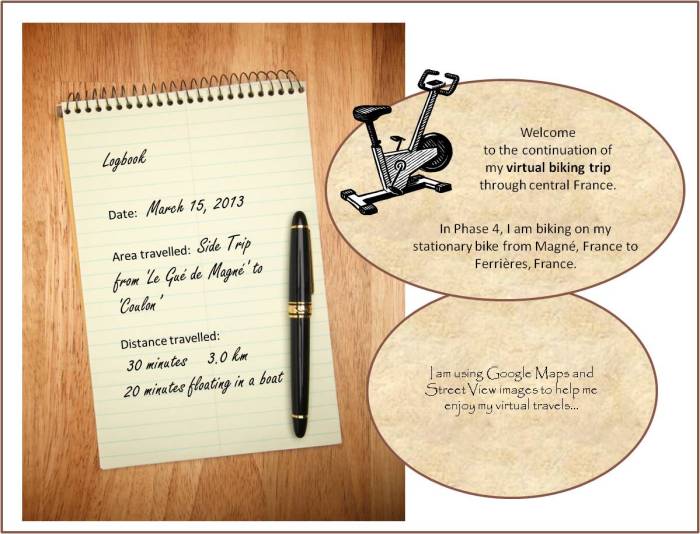 Logbook
Date: March 15, 2013
Area travelled: Side Trip
from 'Le Gué de Magné' to
'Coulon'
Distance travelled:
30 minutes 3,0 km
20 minutes floating in a boat
Welcome
to the continuation of
my virtual biking trip
through central France.
In Phase 4, I am biking on my
stationary bike from Magné, France to
Ferrières, France.
I am using Google Maps and
Street View images to help me
enjoy my virtual travels...